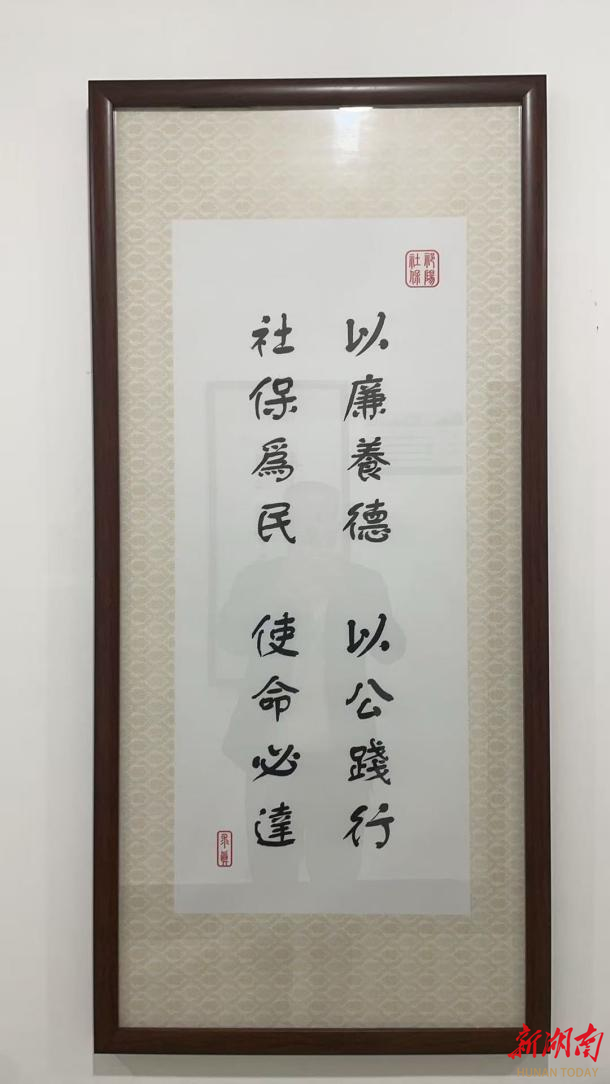 祁陽
社保
以廉養德 以公踐行
社保爲民 使命必達
新湖南
HUNAN TODAY